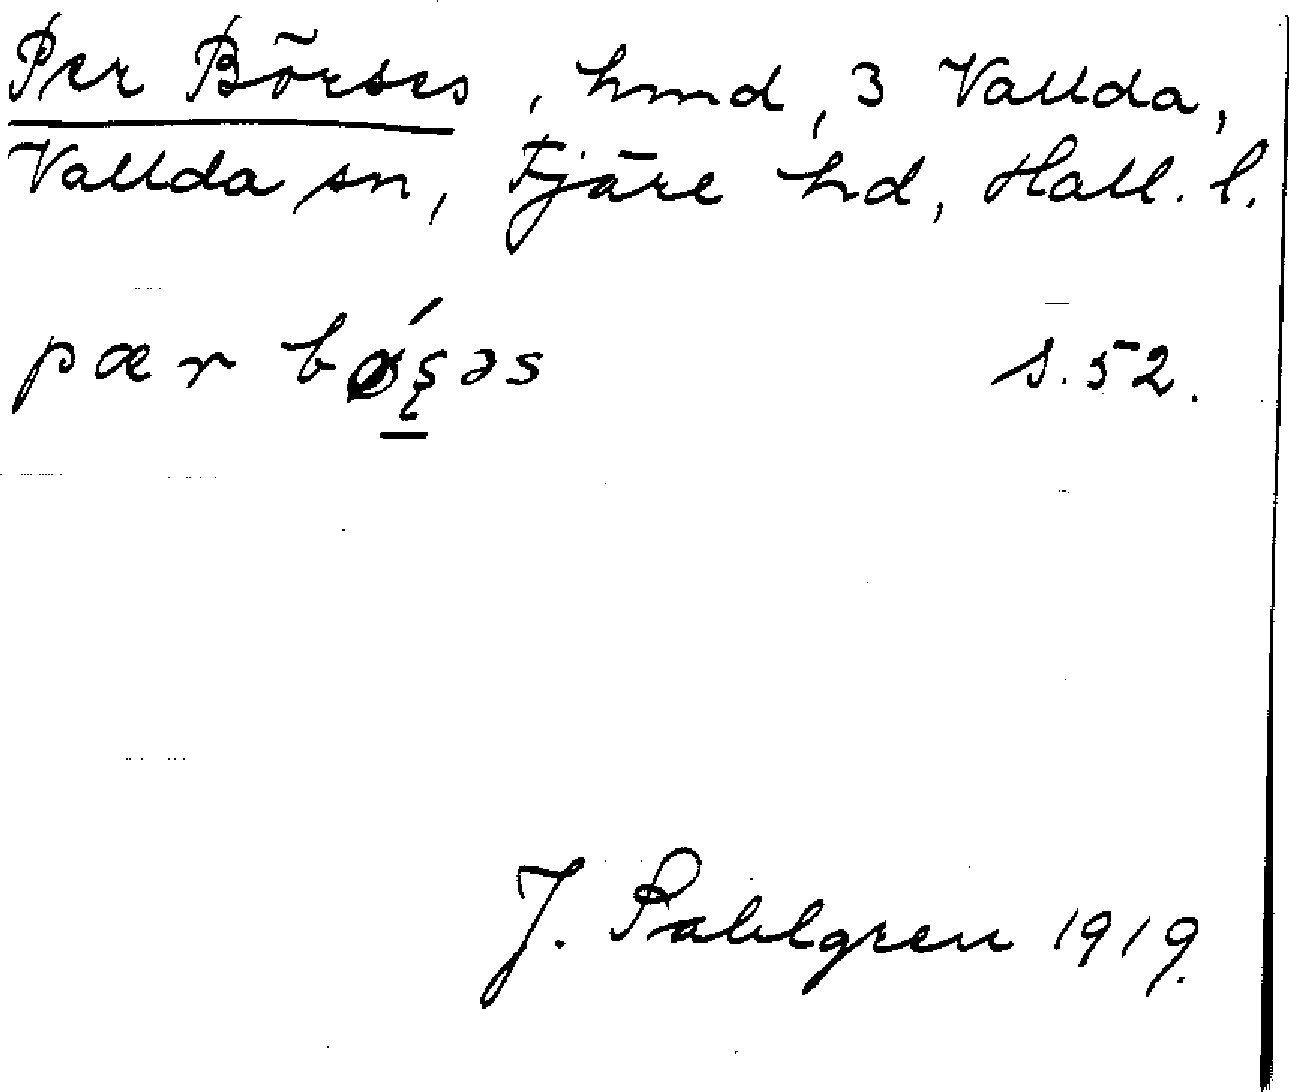 Per Börses, hmd, 3 Vallda,
Vallda sn, Fjäre hd, Hall. l.
pær bǿʂəs s. 52.
J. Sahlgren 1919.